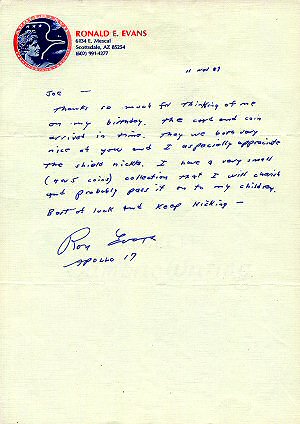 RONALD E. EVANS
6134 E. Mescal
Scottsdale, AZ 85254
(602) 991-4277
11 Nov
Joe —
Thanks so much for thinking of me
on my birthday. The card and coin
arrived in time. They were both very
nice of you and I aspecially appreciate
the shield nickle. I have a very small
(now 5 coins) collection that I will cherish
and probably pass it on to my children.
Best of luck and keep kicking —
Ron Evans
APOLLO 17